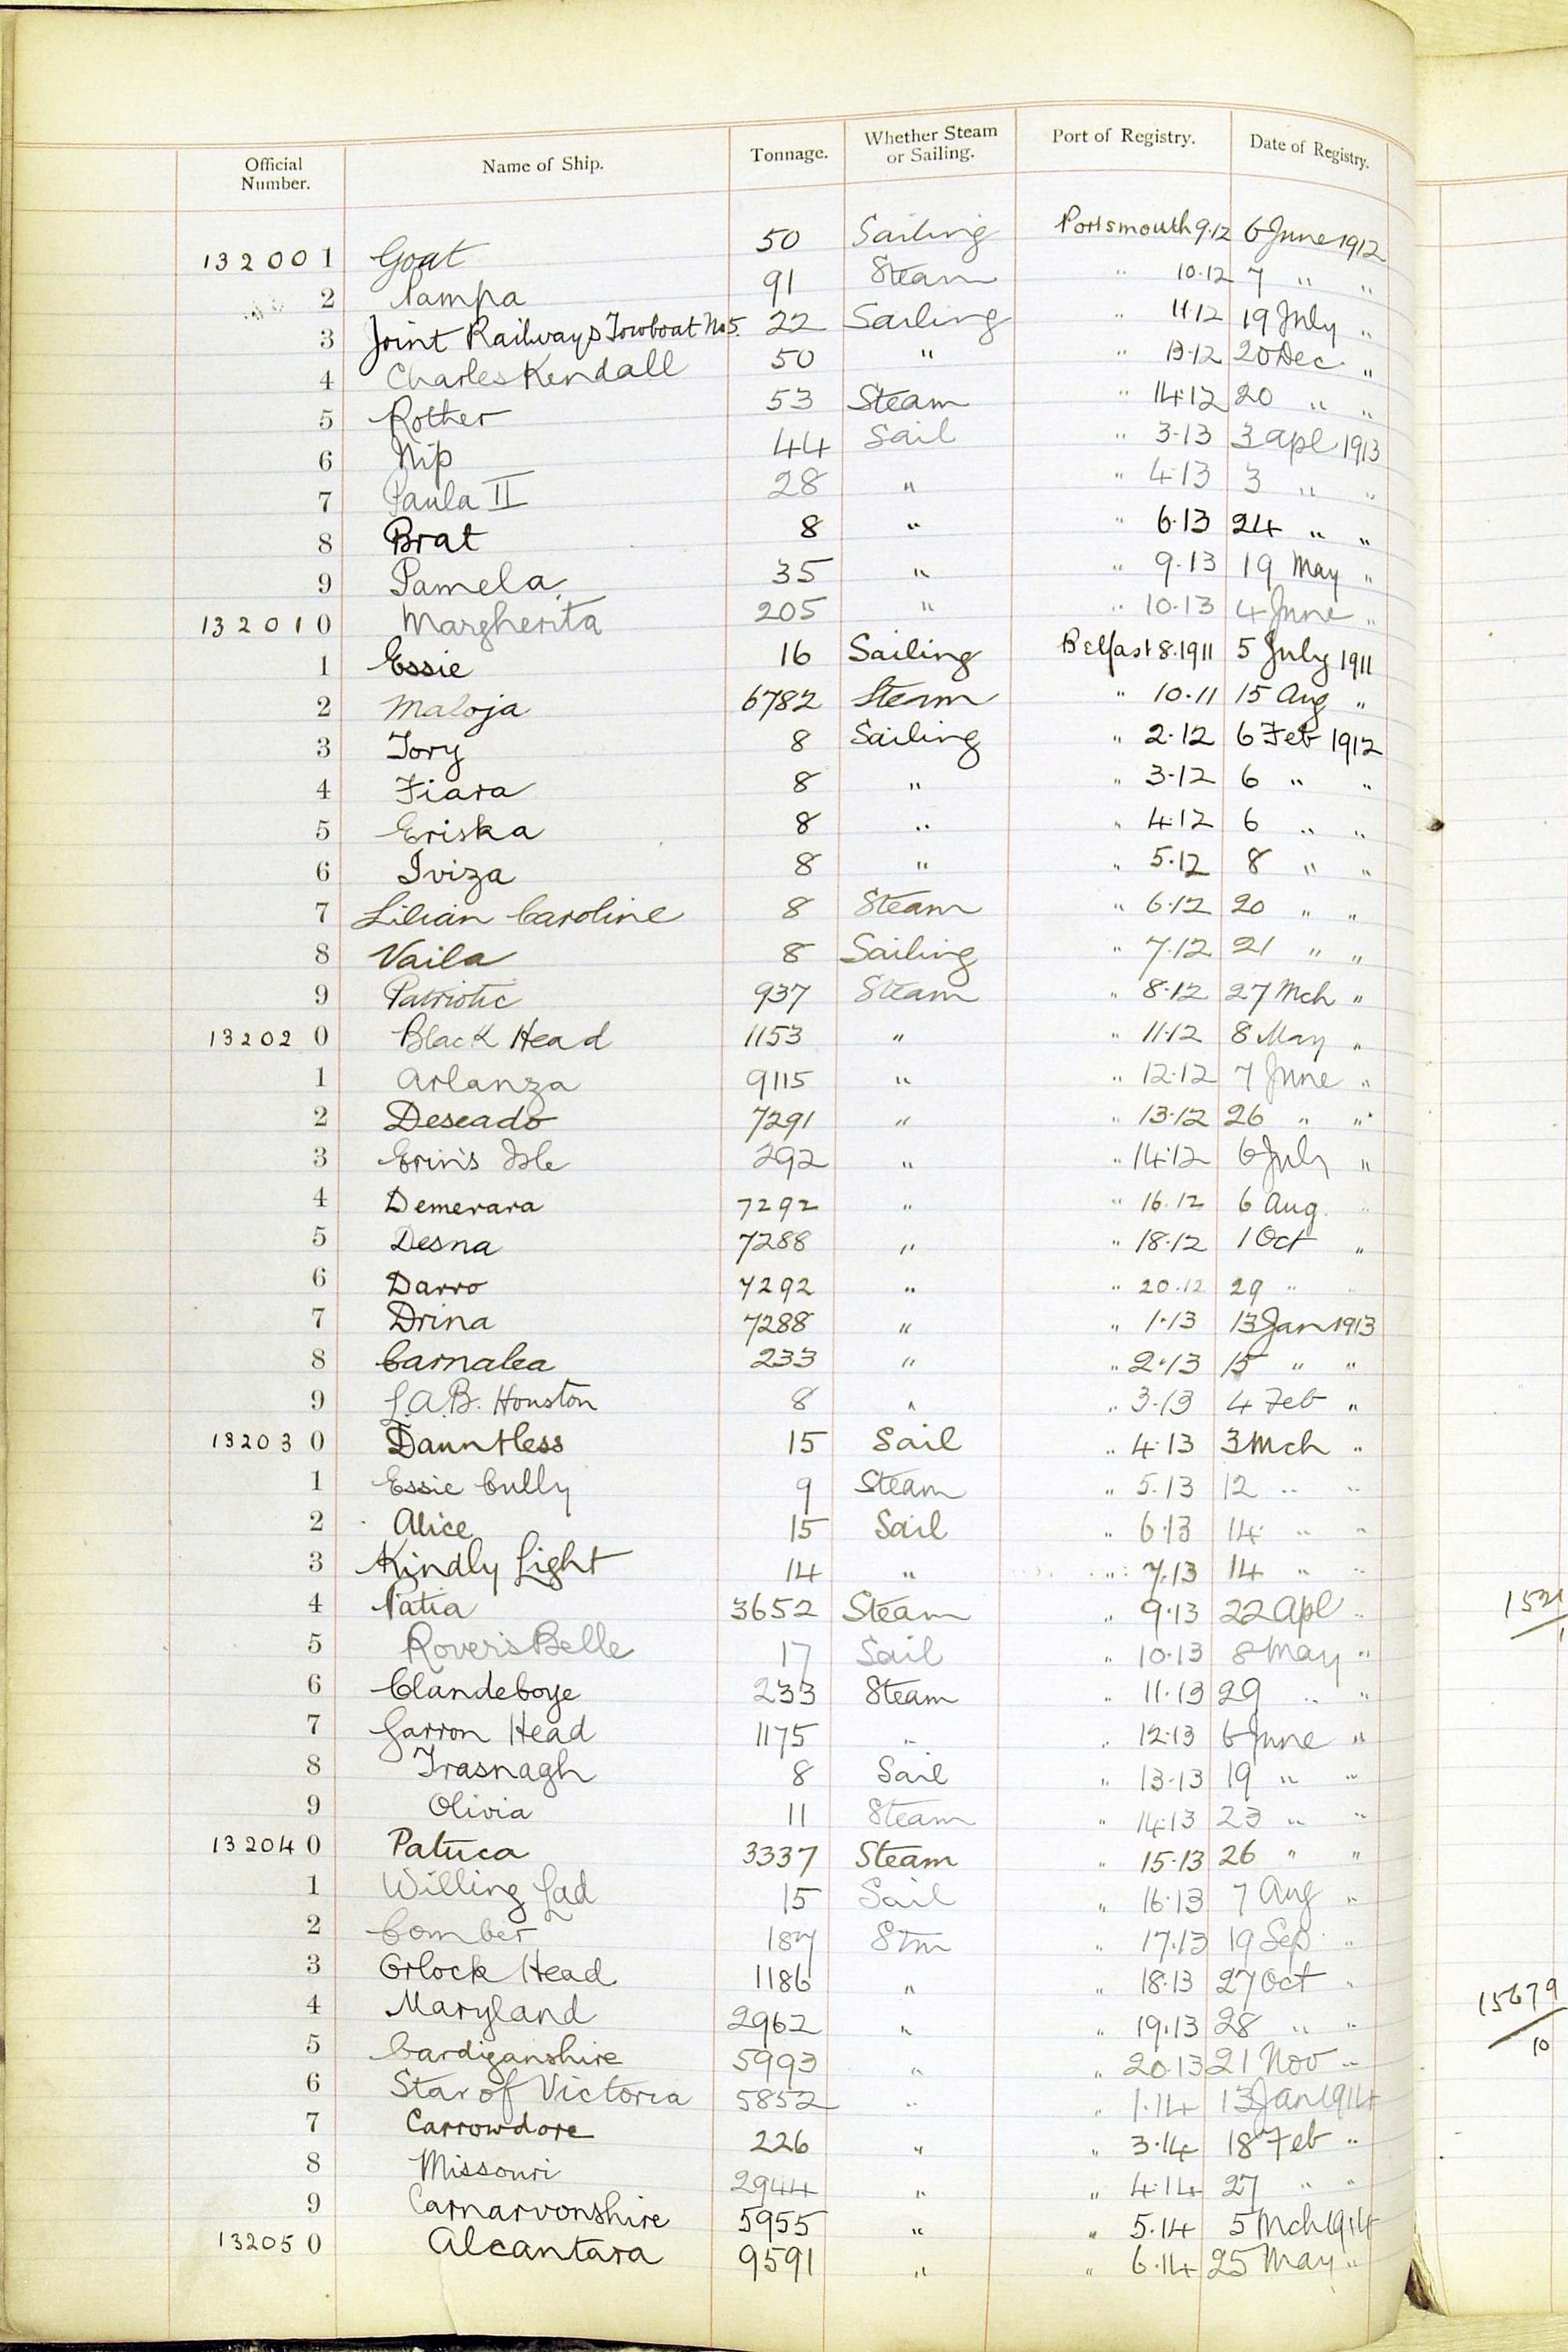 Official Number. Name of Ship. Tonnage. Whether Steam or Sailing. Port of Registry. Date of Registry.
132001 Goat 50 Sailing Portsmouth 9.12 6 June 1912
2 Pampa 91 Steam " 10.12 7 " "
3 Joint Railways Towboat No 5. 22 Sailing " 11.12 19 July "
4 Charles Kendall 50 " " 13.12 20 Dec. "
5 Rother 53 Steam " 14.12 20 " "
6 Nip 44 Sail " 3.13 3 Apl 1913
7 Paula II 28 " " 4.13 3 " "
8 Brat 8 " " 6.13 24 " "
9 Pamela 35 " " 9.13 19 May "
132010 Margherita 205 " " 10.13 4 June "
1 Essie 16 Sailing Belfast 8.1911 5 July 1911
2 Maloja 6782 Steam " 10.11 15 Aug "
3 Tory 8 Sailing " 2.12 6 Feb 1912
4 Fiara 8 " " 3.12 6 " "
5 Eriska 8 " " 4.12 6 " "
6 Iviza 8 " " 5.12 8 " "
7 Lilian Caroline 8 Steam " 6.12 20 " "
8 Vaila 8 Sailing " 7.12 21 " "
9 Patriotic 937 Steam " 8.12 27 Mch "
132020 Black Head 1153 " " 11.12 8 May "
1 Arlanza 9115 " " 12.12 7 June "
2 Deseado 7291 " " 13.12 26 " "
3 Erin's Isle 292 " " 14.12 6 July "
4 Demerara 7292 " " 16.12 6 Aug. "
5 Desna 7288 " " 18.12 1 Oct "
6 Darro 7292 " " 20.12 29 "
7 Drina 7288 " " 1.13 13 Jan 1913
8 Carnalea 233 " " 2.13 15 " "
9 L.A.B. Houston 8 " " 3.13 4 Feb "
132030 Dauntless 15 Sail " 4.13 3 Mch "
1 Essie Cully 9 Steam " 5.13 12 " "
2 Alice 15 Sail " 6.13 14 " "
3 Kindly Light 14 " " 7.13 14 " "
4 Patia 3652 Steam " 9.13 22 Apl "
5 Rover's Belle 17 Sail " 10.13 8 May "
6 Clandeboye 233 Steam " 11.13 29 " "
7 Garron Head 1175 " " 12.13 6 June "
8 Trasnagh 8 Sail " 13.13 19 " "
9 Olivia 11 Steam " 14.13 23 " "
132040 Patuca 3337 Steam " 15.13 26 " "
1 Willing Lad 15 Sail " 16.13 7 Aug "
2 Comber 187 Stm " 17.13 19 Sep. "
3 Orlock Head 1186 " " 18.13 27 Oct "
4 Maryland 2962 " " 19.13 28 " "
5 Cardiganshire 5993 " " 20.13 21 Nov "
6 Star of Victoria 5852 " " 1.14 13 Jan 1914
7 Carrowdore 226 " " 3.14 18 Feb "
8 Missouri 2944 " " 4.14 27 " "
9 Carnarvonshire 5955 " " 5.14 5 Mch 1914
132050 Alcantara 9591 " " 6.14 25 May "
15679
10